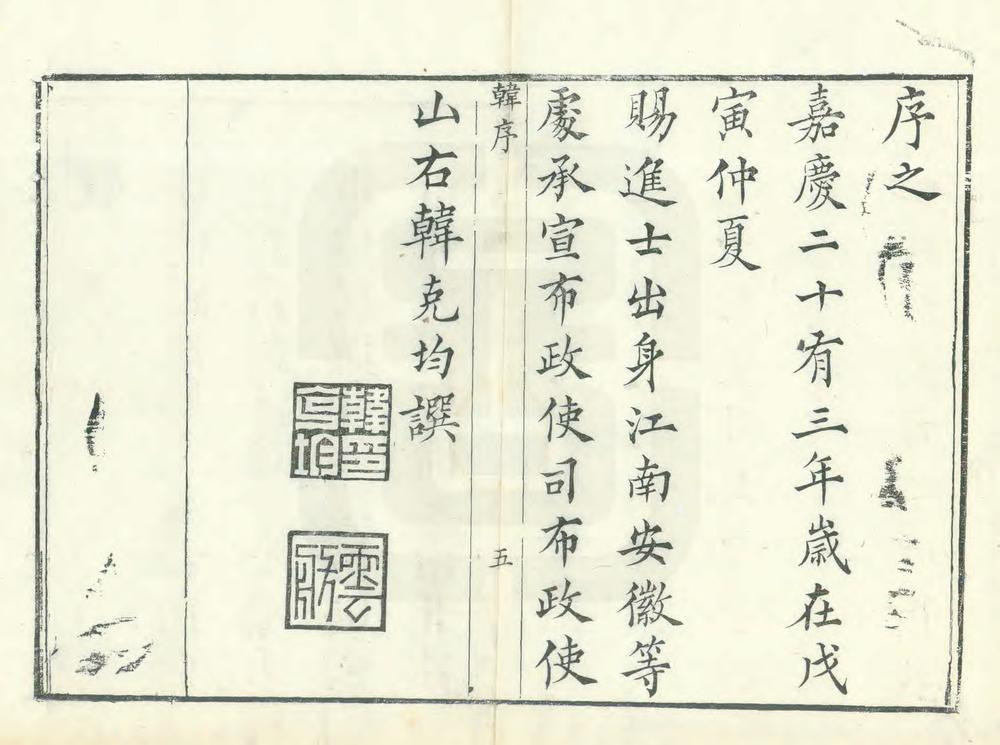 序之
嘉慶二十有三年歲在戊
寅仲夏
賜進士出身江南安徽等
處承宣布政使司布政使
韓序
五
山右韓克均譔
韓克均印